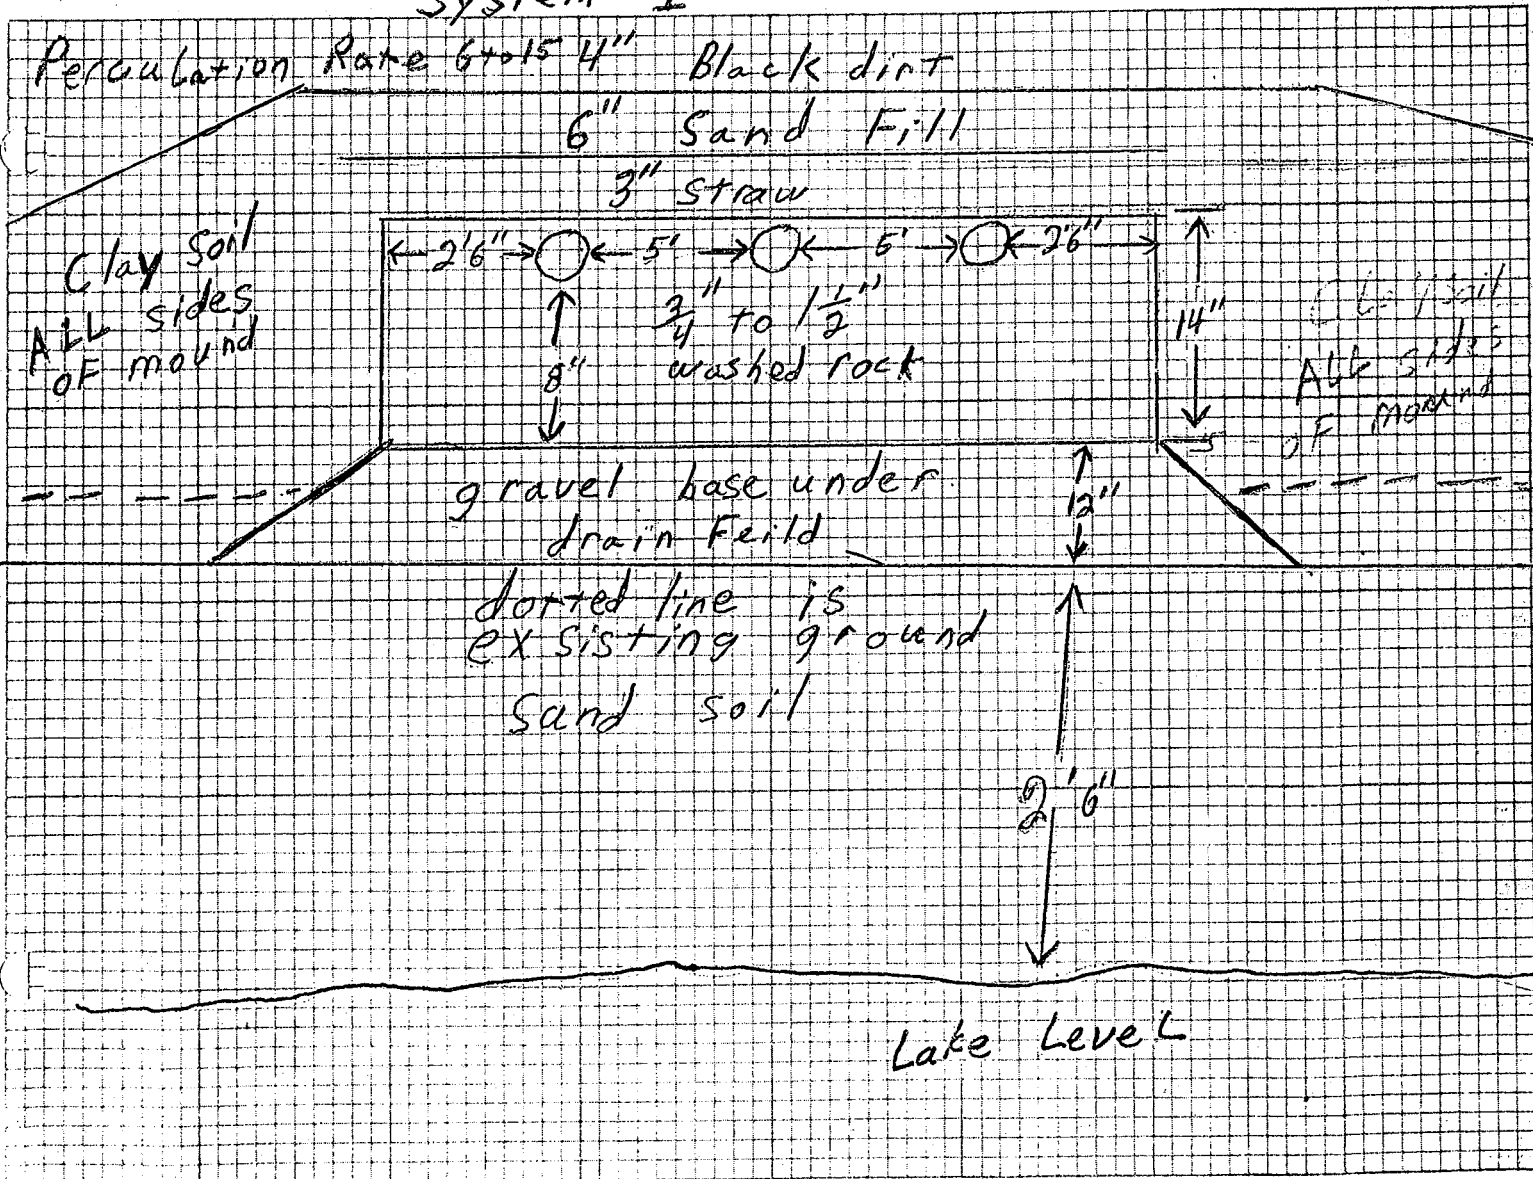 System I
Perculation Rate 6 to 15 4" Black dirt
6" Sand Fill
3" straw
2'6" 5' 5' 2'6"
Clay Soil
ALL sides
OF mound
3/4" to 1 1/2"
washed rock
8"
14"
Clay soil
ALL sides
OF mound
gravel base under
drain Feild
12"
dotted line is
exsisting ground
Sand soil
2'6"
Lake LeveL